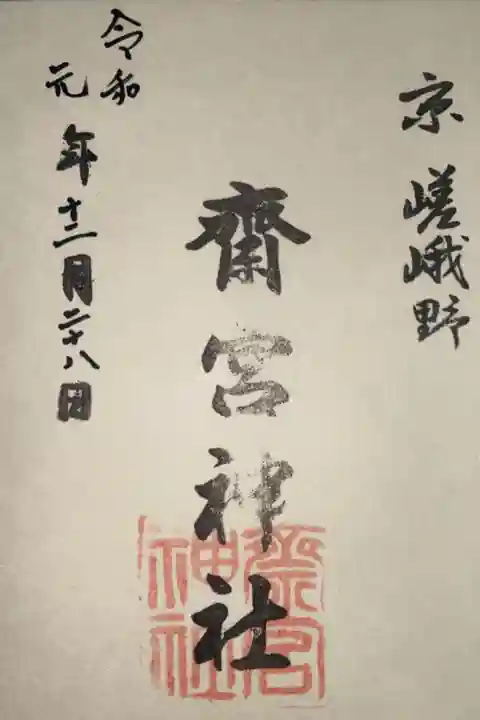 京 嵯峨野
齋宮神社
令和
元
年十二月二十八日
齋宮
神社